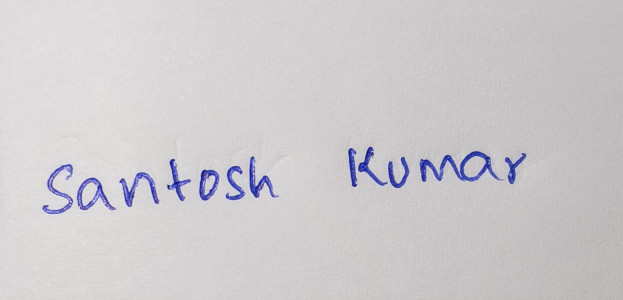 Santosh Kumar